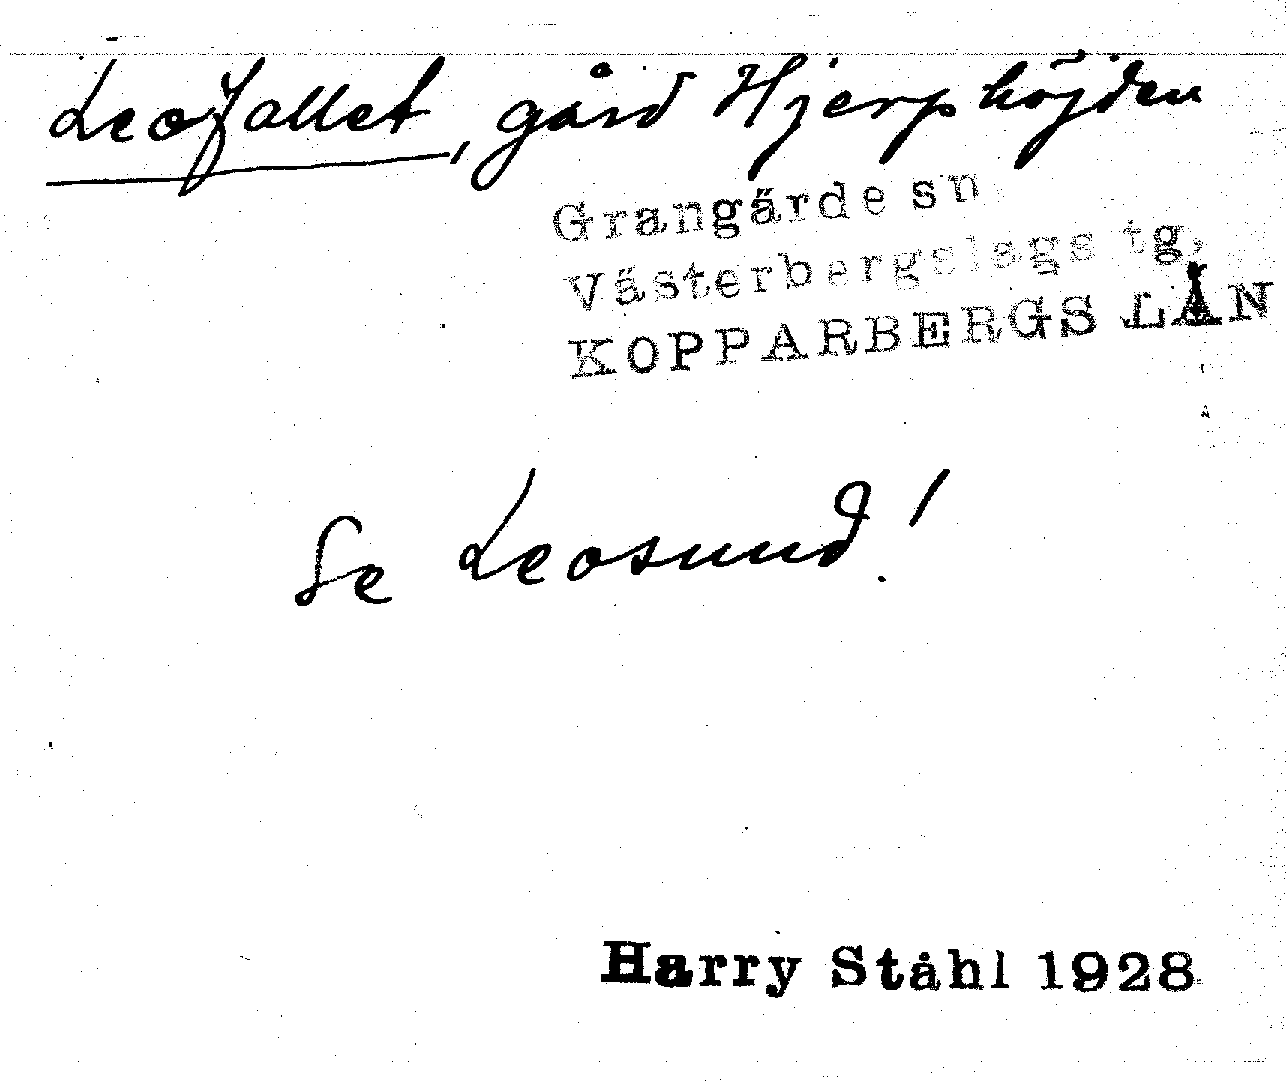 Leofallet, gård Hjerphöjden
Grangärde sn
Västerbergslags tg,
KOPPARBERGS LÄN
Se Leosund!
Harry Ståhl 1928